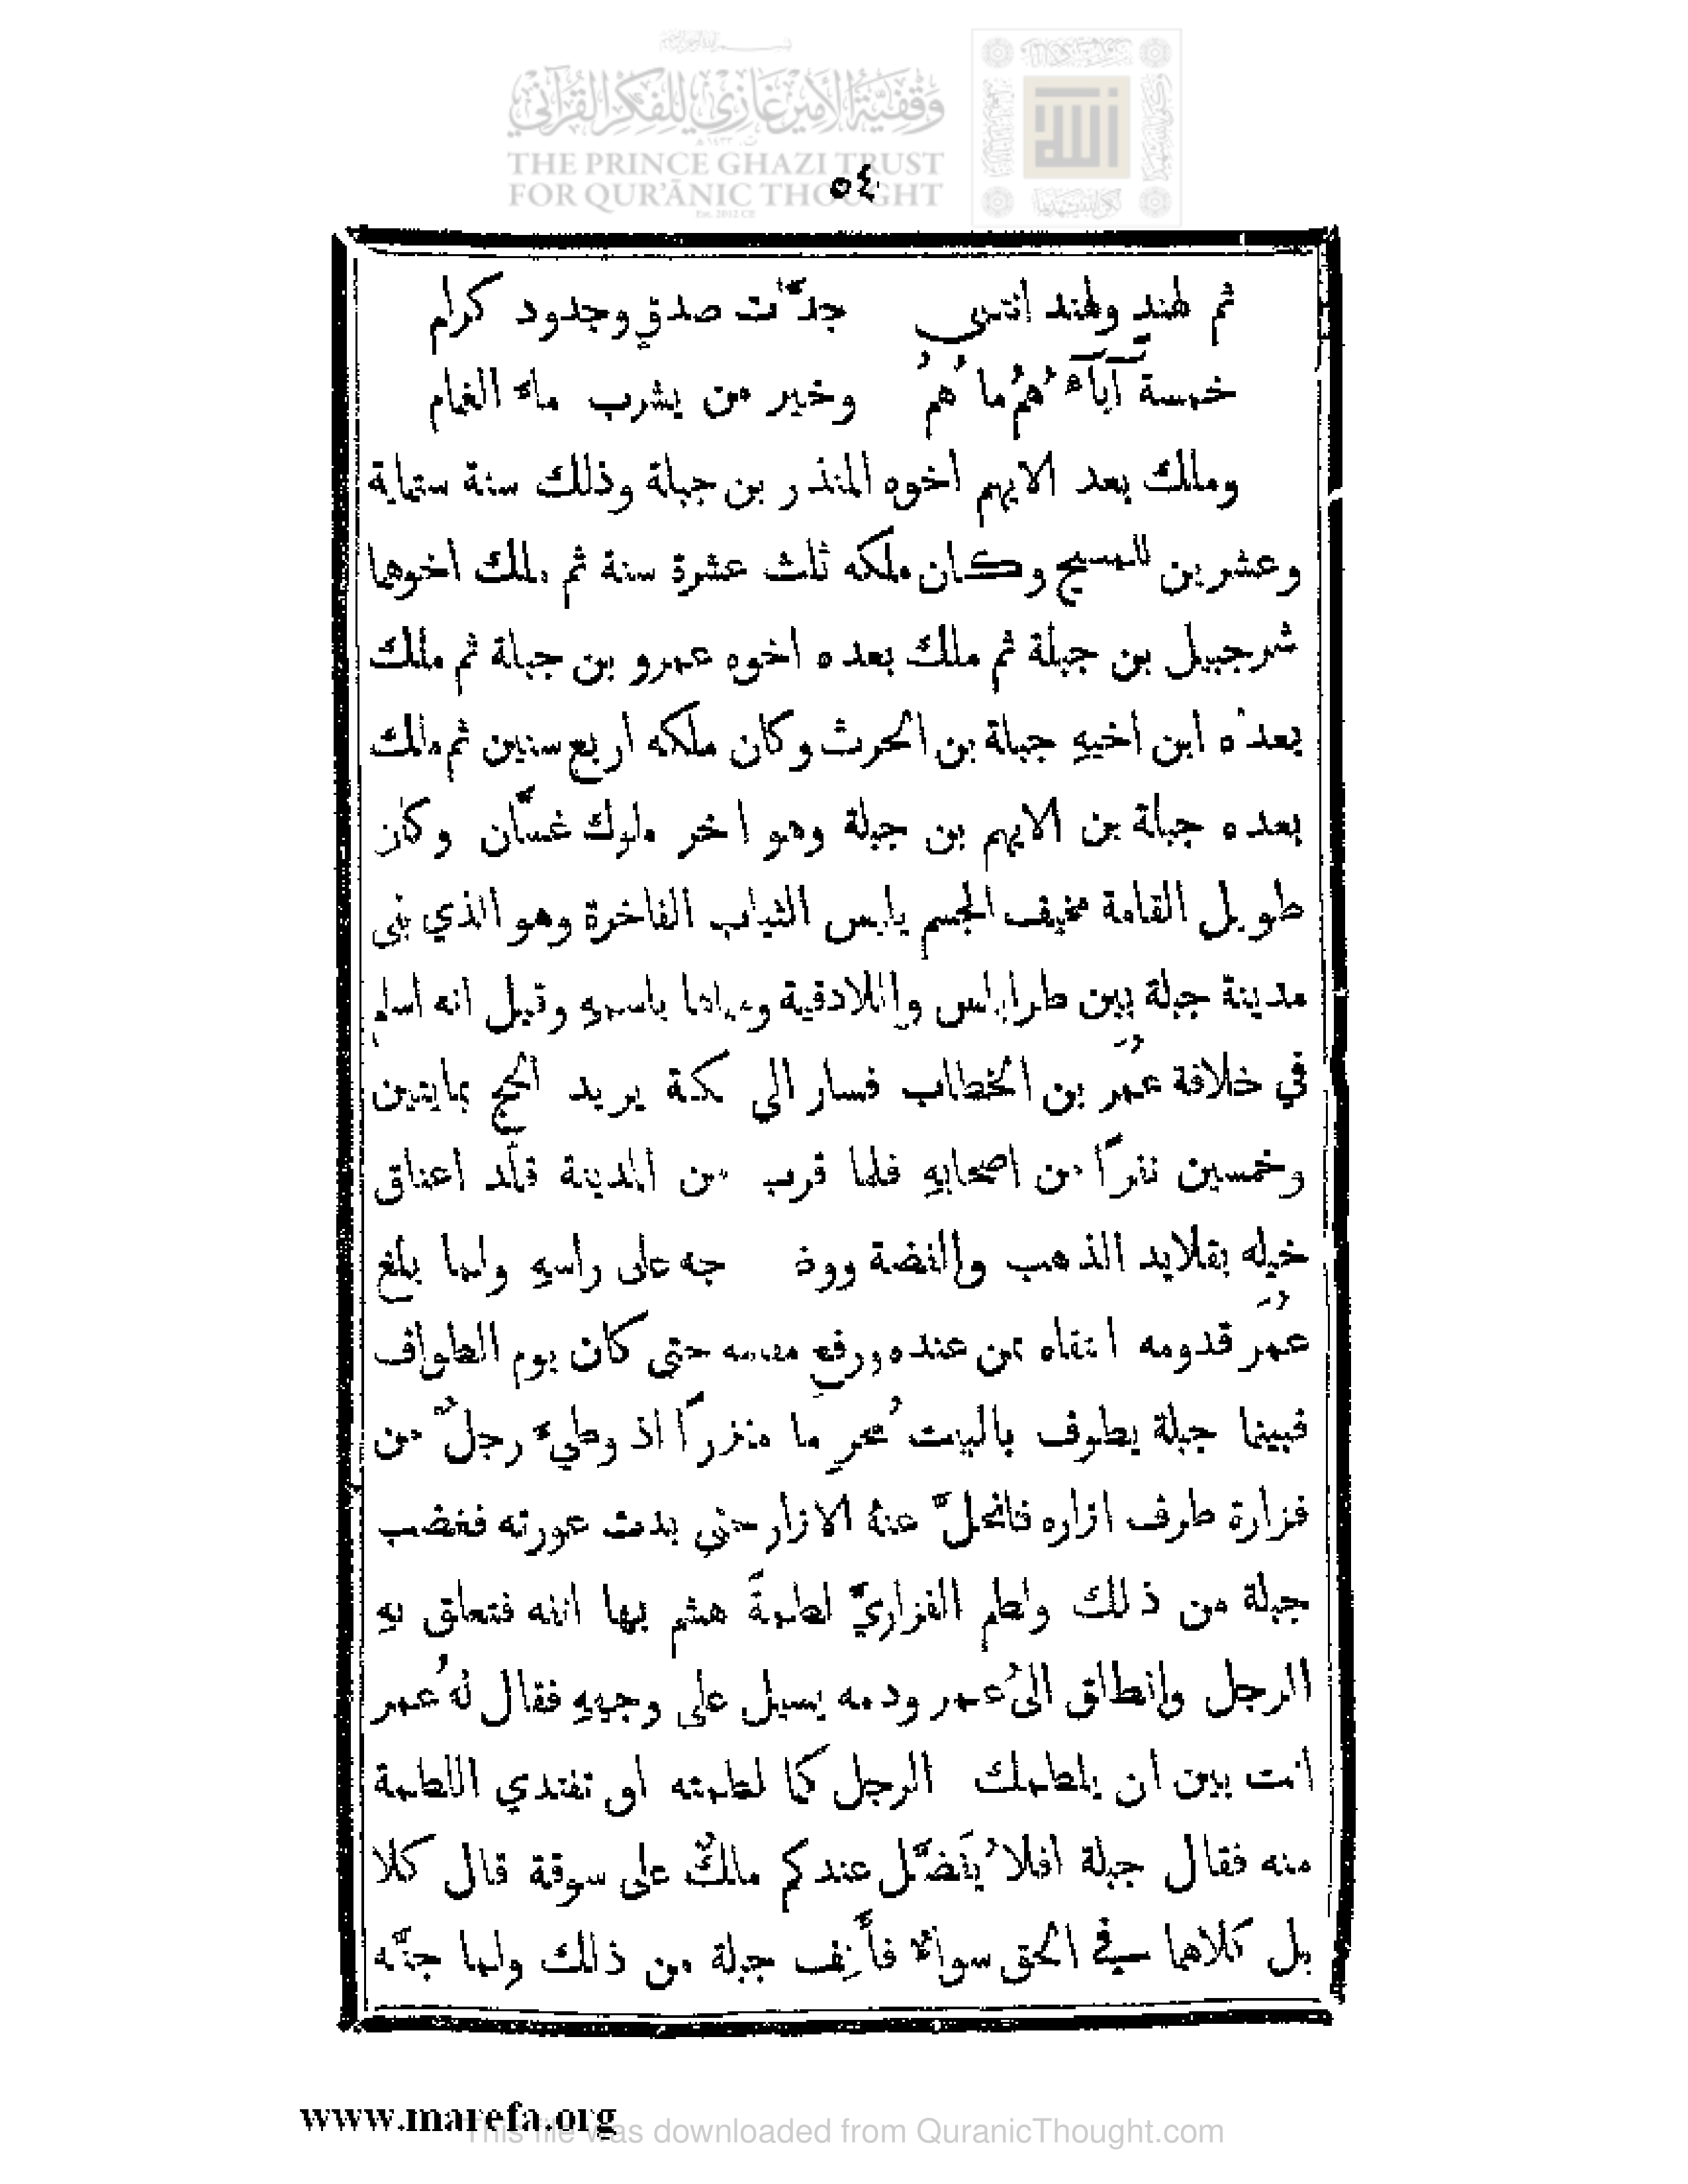 وقفية الأمير غازي للفكر القرآني
THE PRINCE GHAZI TRUST
FOR QUR'ĀNIC THOUGHT
Est. 2012 CE
٥٤
ثم لهندٍ ولهند انتمى جدّات صدقٍ وجدود كرام
خمسة آبآء هُمُ ما هُمُ وخير من يشرب ماء الغمام
وملك بعد الايهم اخوه المنذر بن جبلة وذلك سنة ستماية
وعشرين للمسيح وكان ملكه ثلث عشرة سنة ثم ملك اخوهما
شرحبيل بن جبلة ثم ملك بعده اخوه عمرو بن جبلة ثم ملك
بعده ابن اخيهِ جبلة بن الحرث وكان ملكه اربع سنين ثم ملك
بعده جبلة بن الايهم بن جبلة وهو اخر ملوك غسّان وكان
طويل القامة الجسم يلبس الثياب الفاخرة وهو الذي بنى
مدينة جبلة بين طرابلس واللاذقية باسمهِ وقيل انه اسلم
في خلافة عُمَر بن الخطاب فسار الى مكة يريد الحج بمايتين
وخمسين نفرًا من اصحابهِ فلما قرب من المدينة قلّد اعناق
خيله بقلايد الذهب والفضة على راسهِ ولما بلغ
عُمَر قدومه بمن عنده ورفع حتى كان يوم الطواف
فبينما جبلة يطوف بالبيت اذ وطيء رجلٌ من
فزارة طرف ازاره فانحلّ عنهُ الازار حتى بدت عورته فغضب
جبلة من ذلك ولطم الفزاريَّ لطمةً هشم بها انفه فتعلق بهِ
الرجل وانطلق الى عُمر ودمه يسيل على وجههِ فقال لهُ عُمر
انت بين ان يلطمك الرجل كما لطمته او تفتدي اللطمة
منه فقال جبلة افلا يُفَضَّل عندكم ملكٌ على سوقة قال كلا
بل كلاهما في الحق سوآءٌ فأَنِف جبلة من ذلك ولما جنَّه
www.marefa.org
This file was downloaded from QuranicThought.com